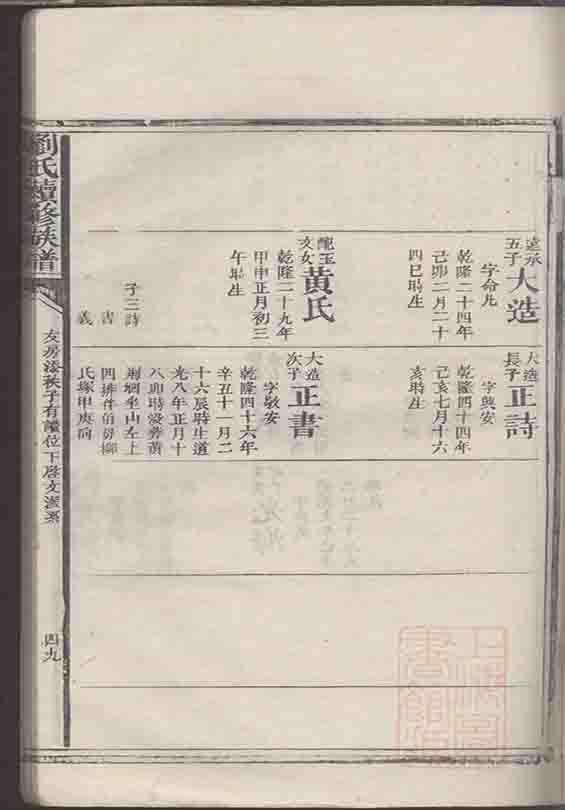 劉氏續修族譜
友房漆秩子有讓位下啓文派系
四九
遠承五子
大造
字命凡
乾隆二十四年
己卯二月二十
四巳時生
龍玉女
黃氏
乾隆二十九年
甲申正月初三
午時生
子三詩
書
義
大造長子
正詩
字興安
乾隆四十四年
己亥七月十六
亥時生
大造次子
正書
字敬安
乾隆四十六年
辛丑十一月二
十六辰時生道
光八年正月十
八卯時歿葬萌
荊坰坐山左上
四排伴伯母柳
氏塚甲庚向
上海圖書館藏